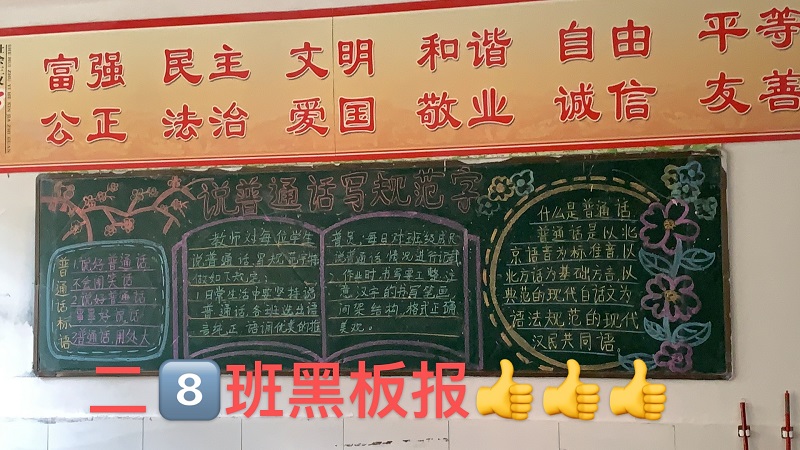 富强 民主 文明 和谐 自由 平等
公正 法治 爱国 敬业 诚信 友善
说普通话写规范字
普通话标语
1.说好普通话
2.说好普通话
3普通话,用处大
教师对每位学生
说普通话,写规范字作
做如下规定:
1日常生活中要坚持说
普通话,各班选出语
音纯正,语词优美的推
普员,每日对班级成员
说普通话情况进行记录
2.作业时,书写要工整,注
意汉字的书写笔画,
间架结构,格式正确
美观。
什么是普通话
普通话是以北
京语音为标准音,以
北方话为基础方言,以
典范的现代白话文为
语法规范的现代
汉民共同语。
二8️⃣班黑板报👍👍👍